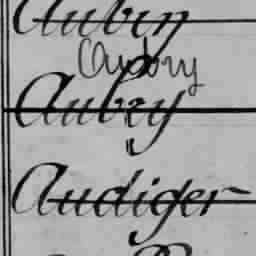 Aubin
Aubry
Aubry
"
Audiger